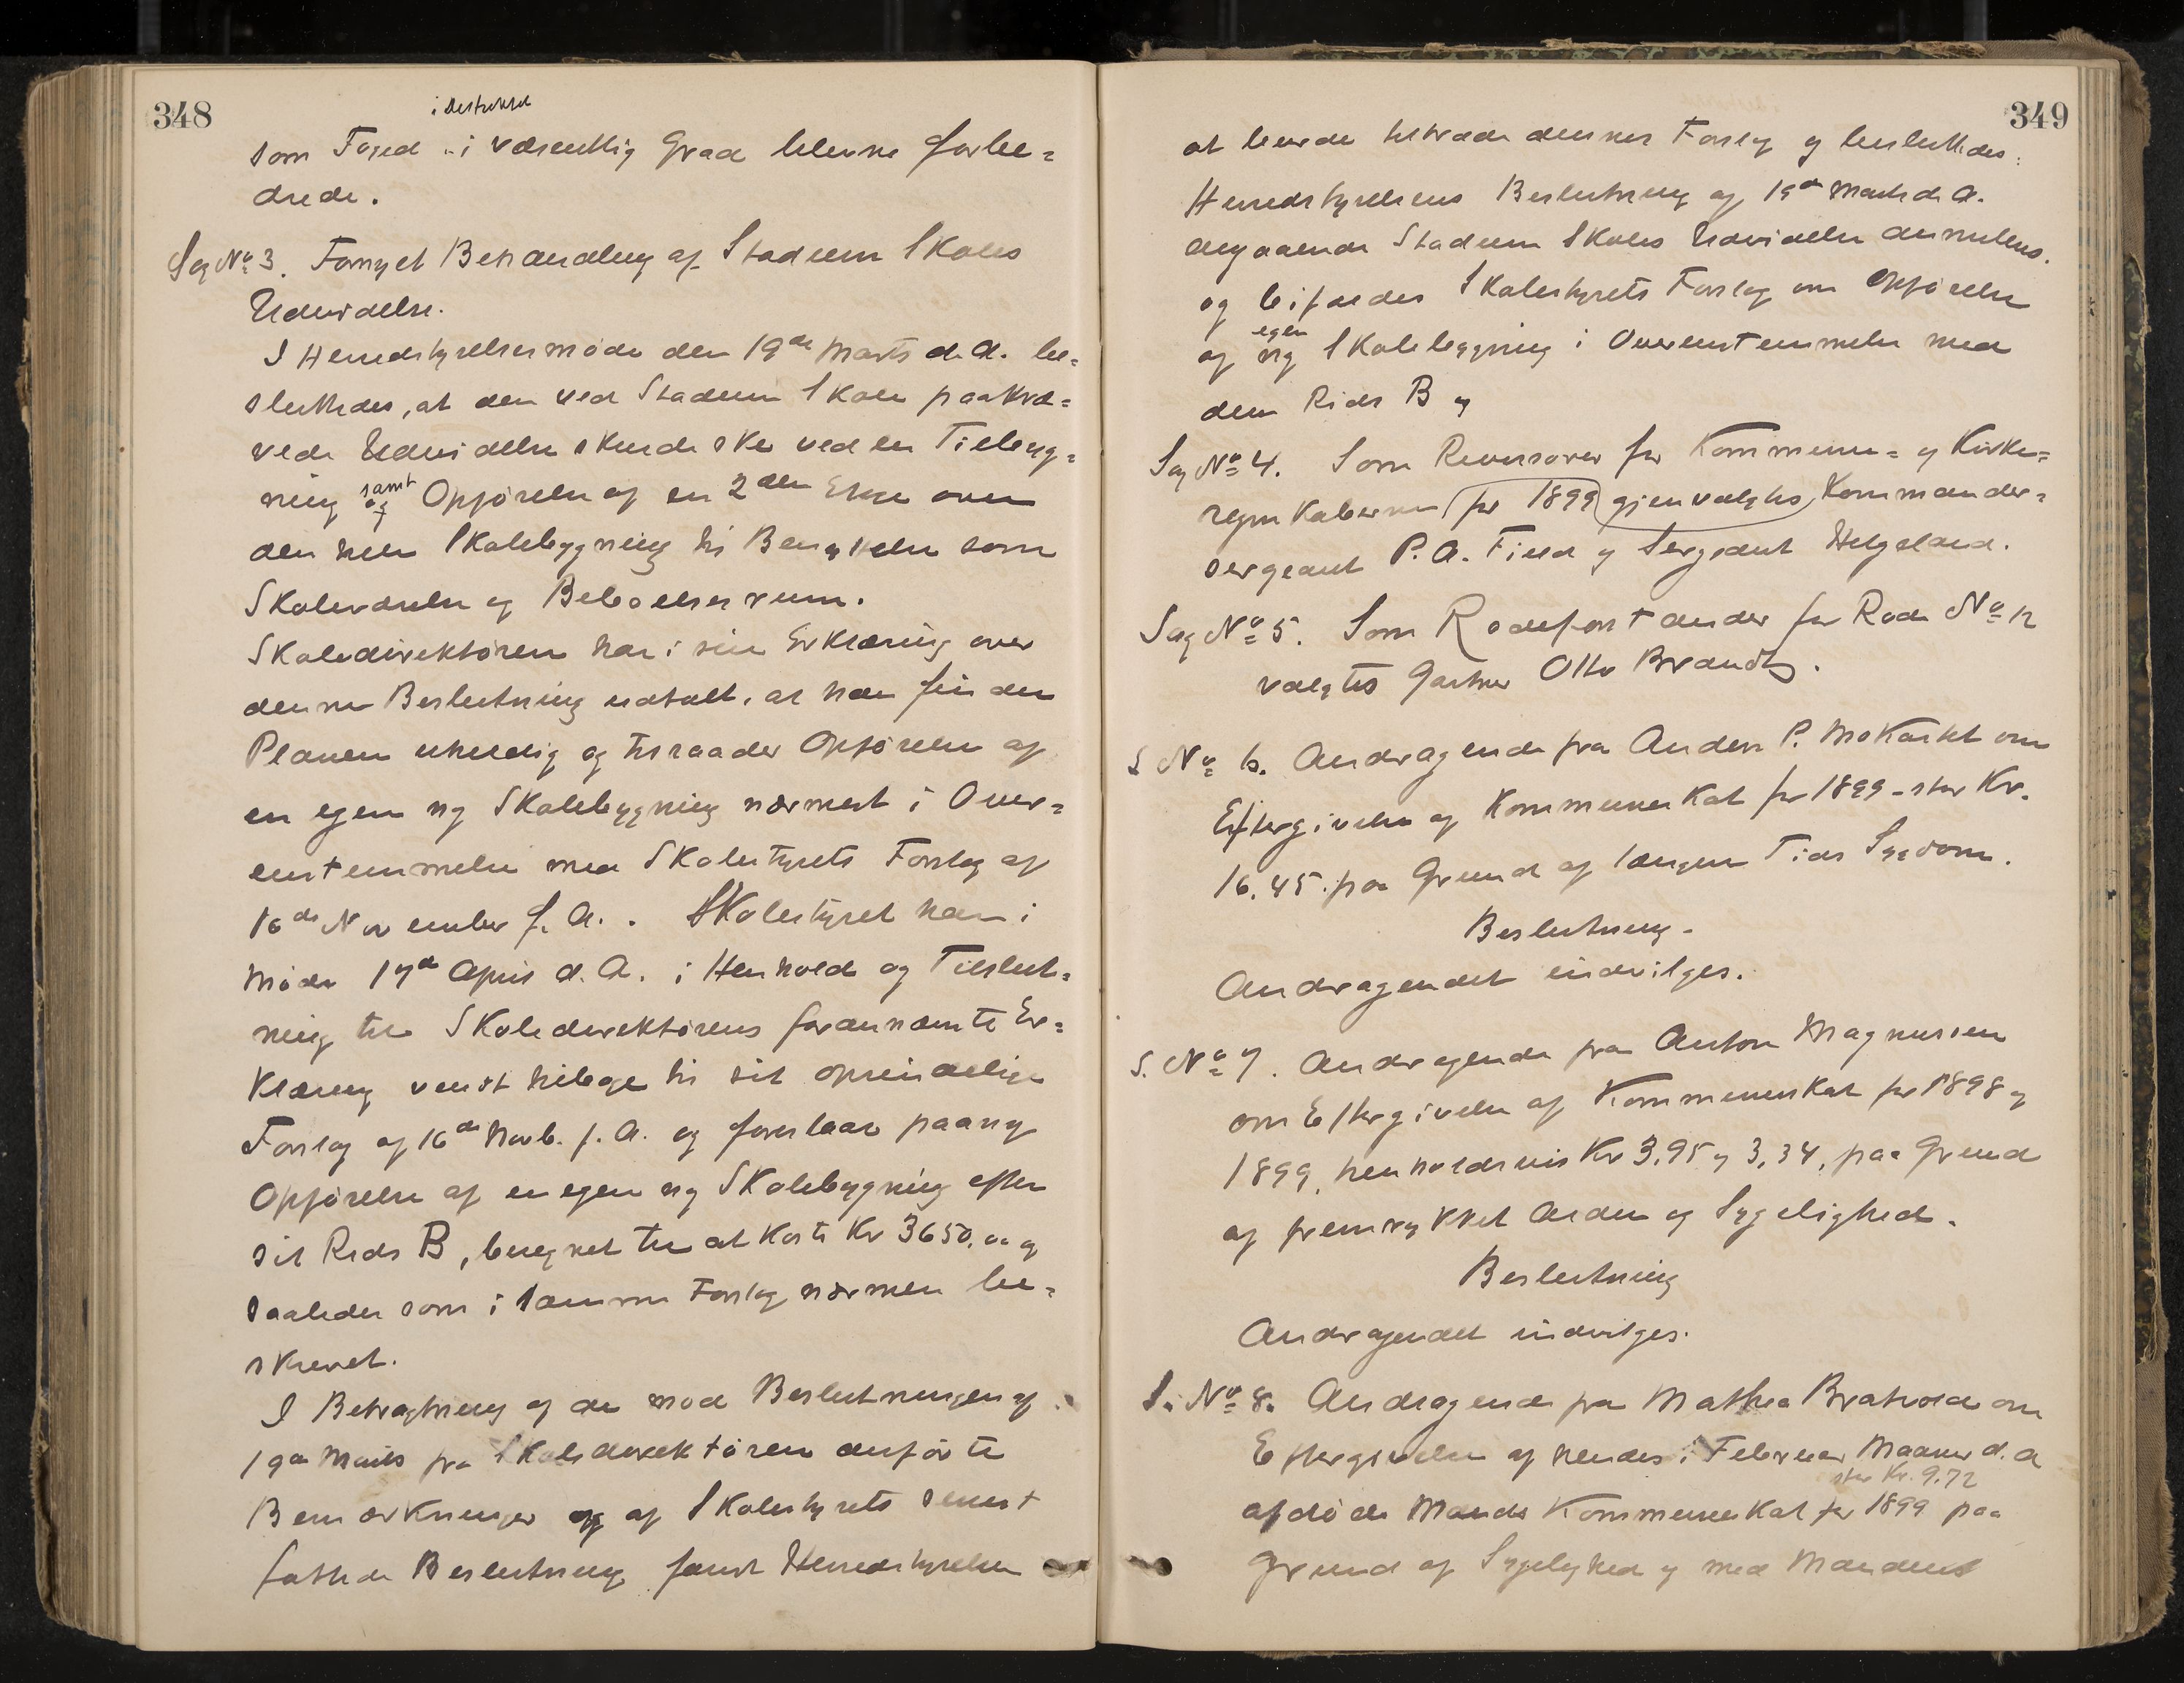 348
i Distriktet
som Foged i væsentlig Grad bleve forbe=
drede.
Sag No 3. Fornyet Behandling af Stadum Skoles
Udvidelse.
I Herredstyrelsesmøde den 19de Marts d. A. be=
sluttedes, at den ved Stadum Skole paakræ=
vede Udvidelse skulde ske ved en Tilbyg=
ning samt og Opførelse af en 2den Etage over
den hele Skolebygning til Benyttelse som
Skoleværelse og Beboelsesrum.
Skoledirektøren har i sin Erklæring over
denne Beslutning udtalt, at han finder
Planen uheldig og tilraader Opførelse af
en egen ny Skolebygning nærmest i Over=
enstemmelse med Skolestyrets Forslag af
16de November f. A. . Skolestyret har i
Møde 17de April d. A. i Henhold og Tilslut=
ning til Skoledirektørens forannævnte Er=
klæring vendt tilbage til sit oprindelige
Forslag af 16de Novb. f. A. og foreslaar paany
Opførelse af en egen ny Skolebygning efter
sit Rids B, beregnet til at koste Kr 3650,00 og
saaledes som i samme Forslag nærmere be=
skrevet.
I Betragtning af de mod Beslutningen af
19de Marts fra Skoledirektøren anførte
Bemærkninger og af Skolestyrets senest
fattede Beslutning fandt Herredstyrelsen
349
at burde tiltræde dennes Forslag og besluttedes:
Herredstyrelsens Beslutning af 19de Marts d. A.
angaaende Stadum Skoles Udvidelse annulleres.
og bifaldes Skolestyrets Forslag om Opførelse
egen
af ny Skolebygning i Overenstemmelse med
dens Rids B
Sag No 4. Som Revisorer for Kommune= og Kirke=
regnskaberne for 1899 gjenvalgtes Kommander=
sergeant P. A. Field og Sergeant Helgeland.
Sag No 5. Som Rodeforstander for Rode No 12
valgtes Gartner Otto Brandt.
S No 6. Andragende fra Anders P. Mokastet om
Eftergivelse af Kommuneskat for 1899 - stor Kr.
16.45. paa Grund af længere Tids Sygdom.
Beslutning.
Andragendet indvilges.
S. No 7. Andragende fra Anton Magnussen
om Eftergivelse af Kommuneskat for 1898 og
1899, henholdsvis Kr 3.95 og 3,34, paa Grund
af fremrykket Alder og Sygelighed.
Beslutning
Andragendet indvilges.
S. No 8. Andragende fra Mathea Bratvold om
Eftergivelse af hendes i Februar Maaned d. A
stor Kr. 9.72
afdøde Mands Kommuneskat for 1899 paa
Grund af Sygelighed og med Mandens